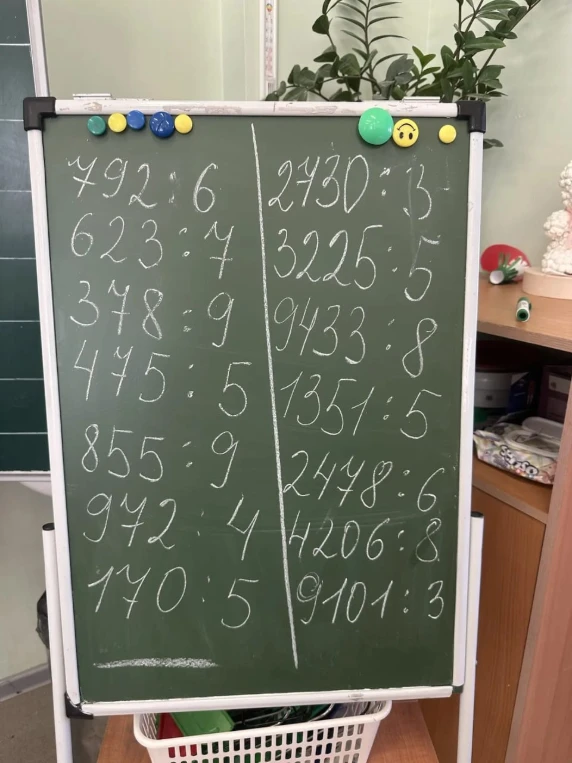 792:6
623:7
378:9
475:5
855:9
972:4
170:5
2730:3
3225:5
9433:8
1351:5
2478:6
4206:8
9101:3